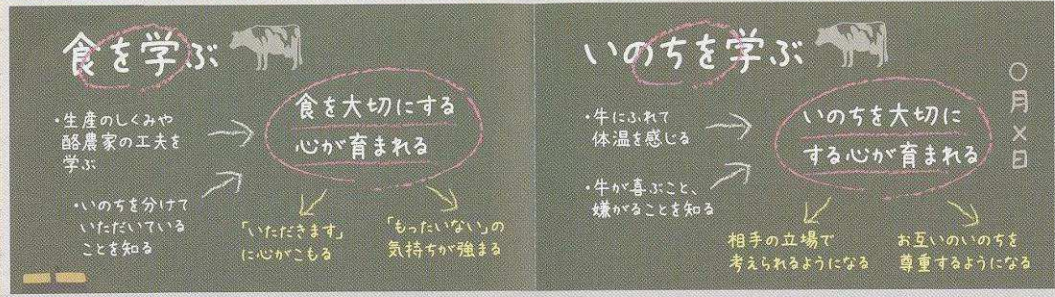 食を学ぶ
・生産のしくみや
酪農家の工夫を
学ぶ
・いのちを分けて
いただいている
ことを知る
食を大切にする
心が育まれる
「いただきます」
に心がこもる
「もったいない」の
気持ちが強まる
いのちを学ぶ
・牛にふれて
体温を感じる
・牛が喜ぶこと、
嫌がることを知る
いのちを大切に
する心が育まれる
相手の立場で
考えられるようになる
お互いのいのちを
尊重するようになる
○月×日